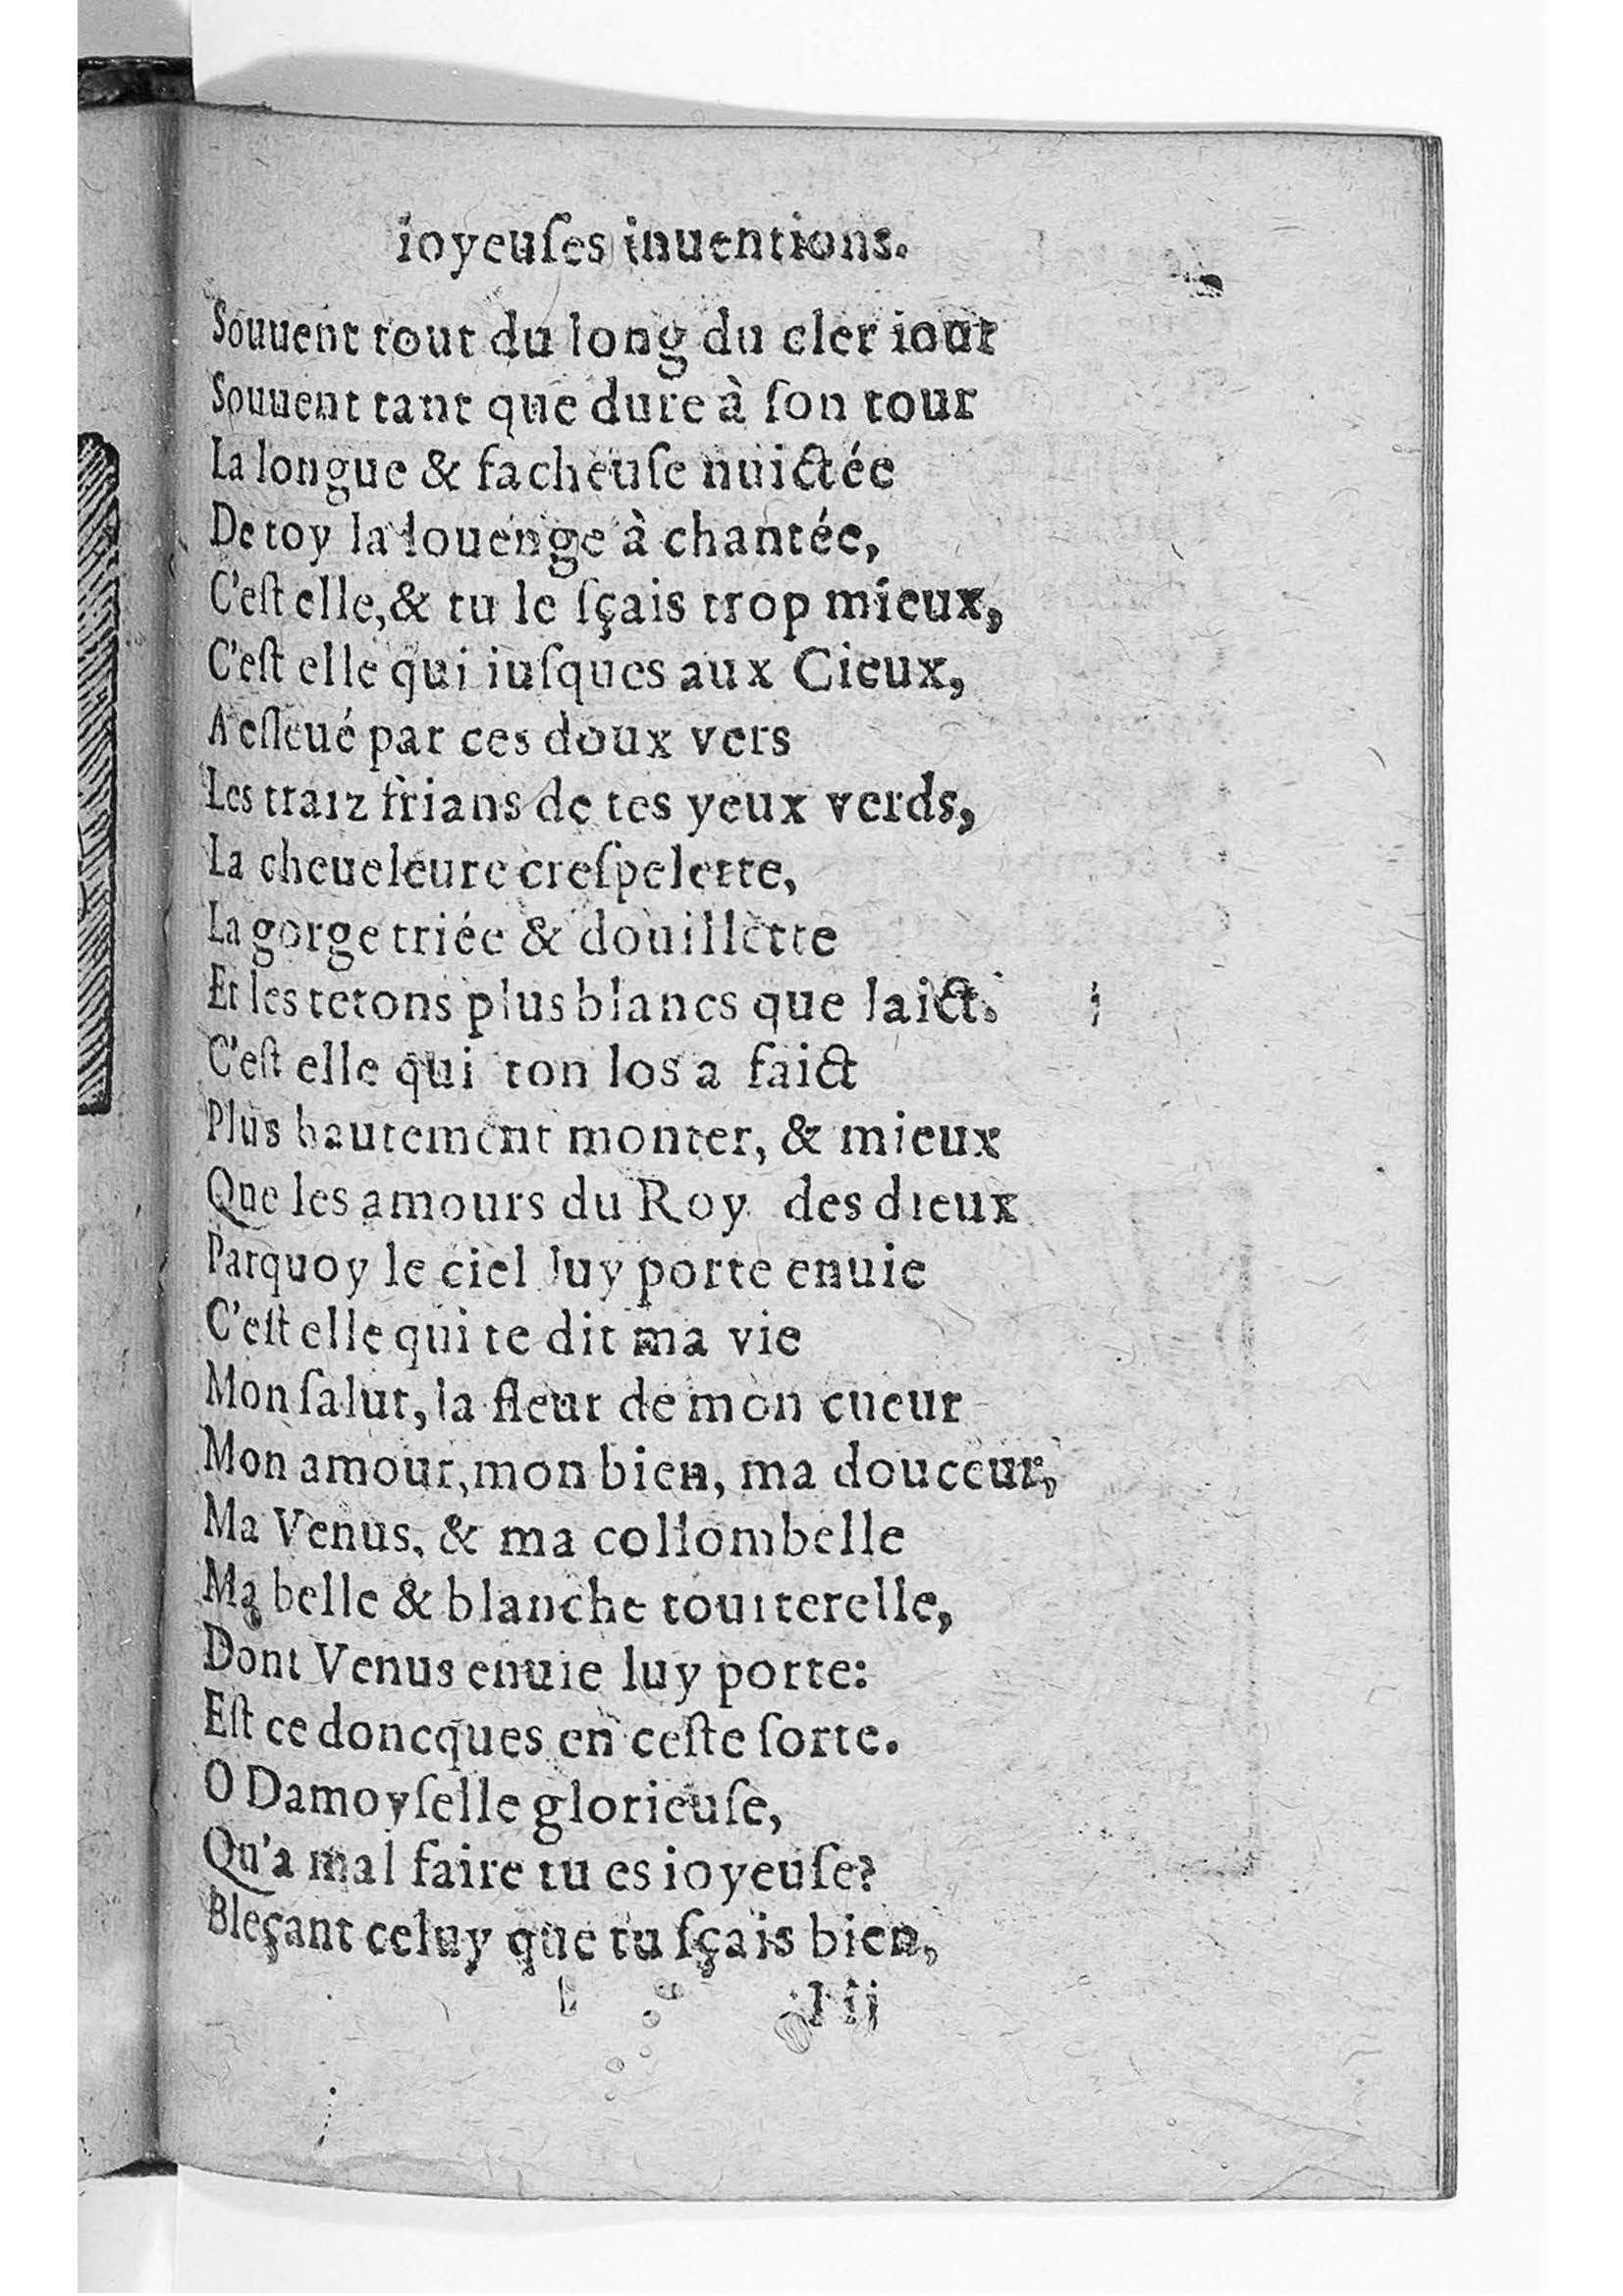 ioyeuſes inuentions.
Souuent tout du long du cler iour
Souuent tant que dure à ſon tour
La longue & facheuſe nuictée
De toy la louenge à chantée,
C'eſt elle, & tu le ſçais trop mieux,
C'eſt elle qui iuſques aux Cieux,
A eſleué par ces doux vers
Les traiz frians de tes yeux verds,
La cheueleure creſpelette,
La gorge triée & douillette
Et les tetons plus blancs que laict.
C'eſt elle qui ton los a faict
Plus hautement monter, & mieux
Que les amours du Roy des dieux
Parquoy le ciel luy porte enuie
C'eſt elle qui te dit ma vie
Mon ſalut, la fleur de mon cueur
Mon amour, mon bien, ma douceur,
Ma Venus, & ma collombelle
Ma belle & blanche tourterelle,
Dont Venus enuie luy porte:
Eſt ce doncques en ceſte ſorte.
O Damoyſelle glorieuſe,
Qu'a mal faire tu es ioyeuſe?
Bleçant celuy que tu ſçais bien,
I ij